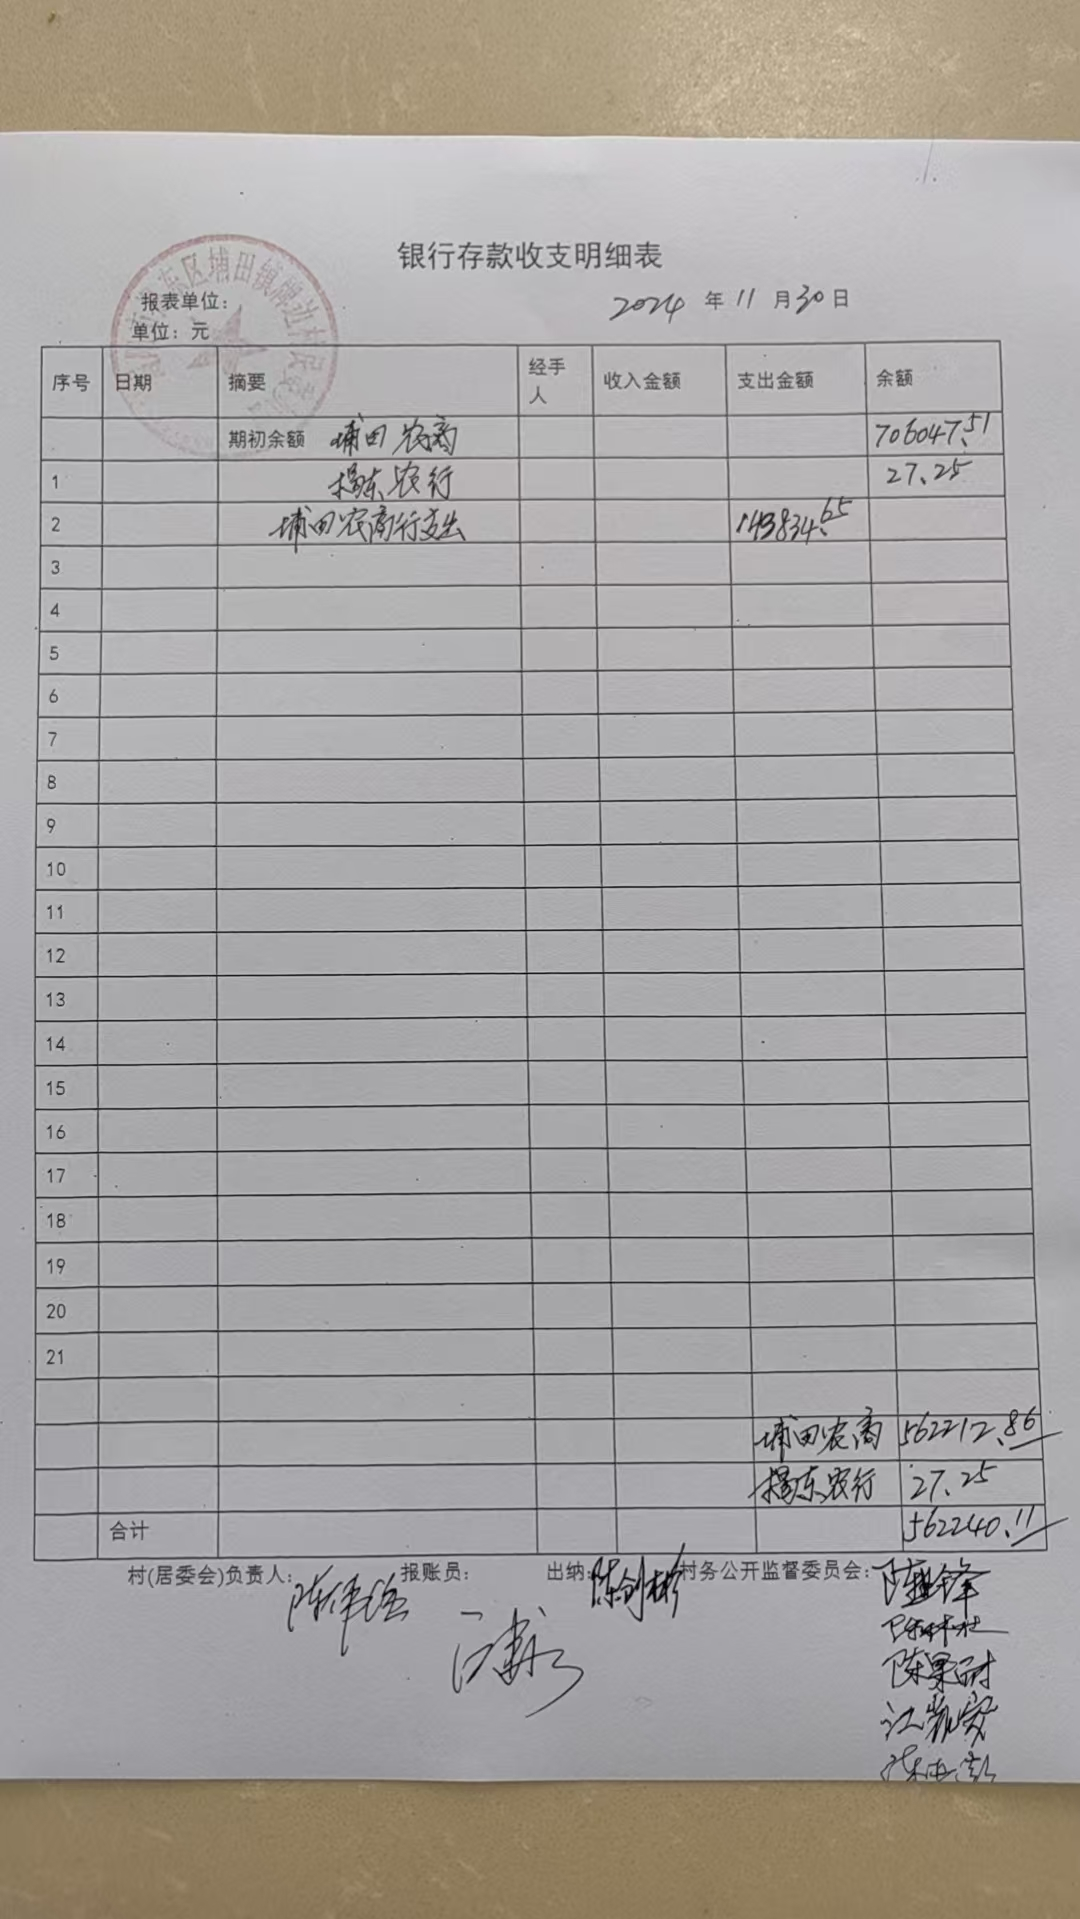 银行存款收支明细表
报表单位：
2024 年 11 月 30 日
单位：元
序号 日期 摘要 经手人 收入金额 支出金额 余额
期初余额 埔田农商 706047.51
1 揭东农行 27.25
2 埔田农商行支出 143834.65
3
4
5
6
7
8
9
10
11
12
13
14
15
16
17
18
19
20
21
埔田农商 562212.86
揭东农行 27.25
合计 562240.11
村(居委会)负责人： 报账员： 出纳： 陈剑彬 村务公开监督委员会：